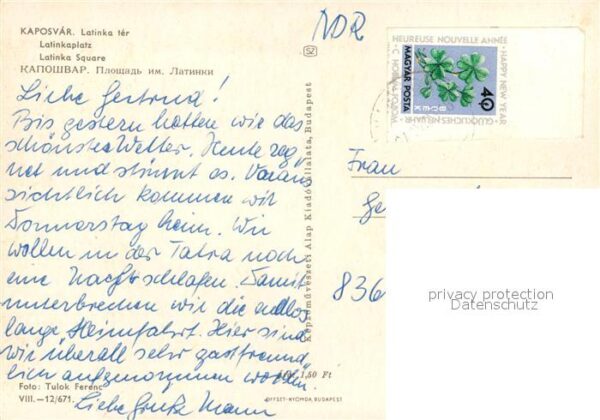 KAPOSVÁR. Latinka tér
Latinkaplatz
Latinka Square
КАПОШВАР. Площадь им. Латинки
Liebe Gertrud!
Bis gestern hatten wir das
schönste Wetter. Heute reg
net und stürmt es. Voraus
sichtlich kommen wir
Donnerstag heim. Wir
wollen in der Tatra noch
eine Nacht schlafen. Damit
unterbrechen wir die endlos
lange Heimfahrt. Hier sind
wir überall sehr gastfreund
lich aufgenommen worden.
Liebe Grüße
Foto: Tulok Ferenc
VIII.—12/671.
1,50 Ft
OFFSET-NYOMDA, BUDAPEST
Képzőművészeti Alap Kiadóvállalata, Budapest
SZ
HEUREUSE NOUVELLE ANNÉE
HAPPY NEW YEAR
GLÜCKLICHES NEUJAHR
С НОВЫМ ГОДОМ
MAGYAR POSTA
40
BUÉK
Frau
Ge
836
privacy protection
Datenschutz